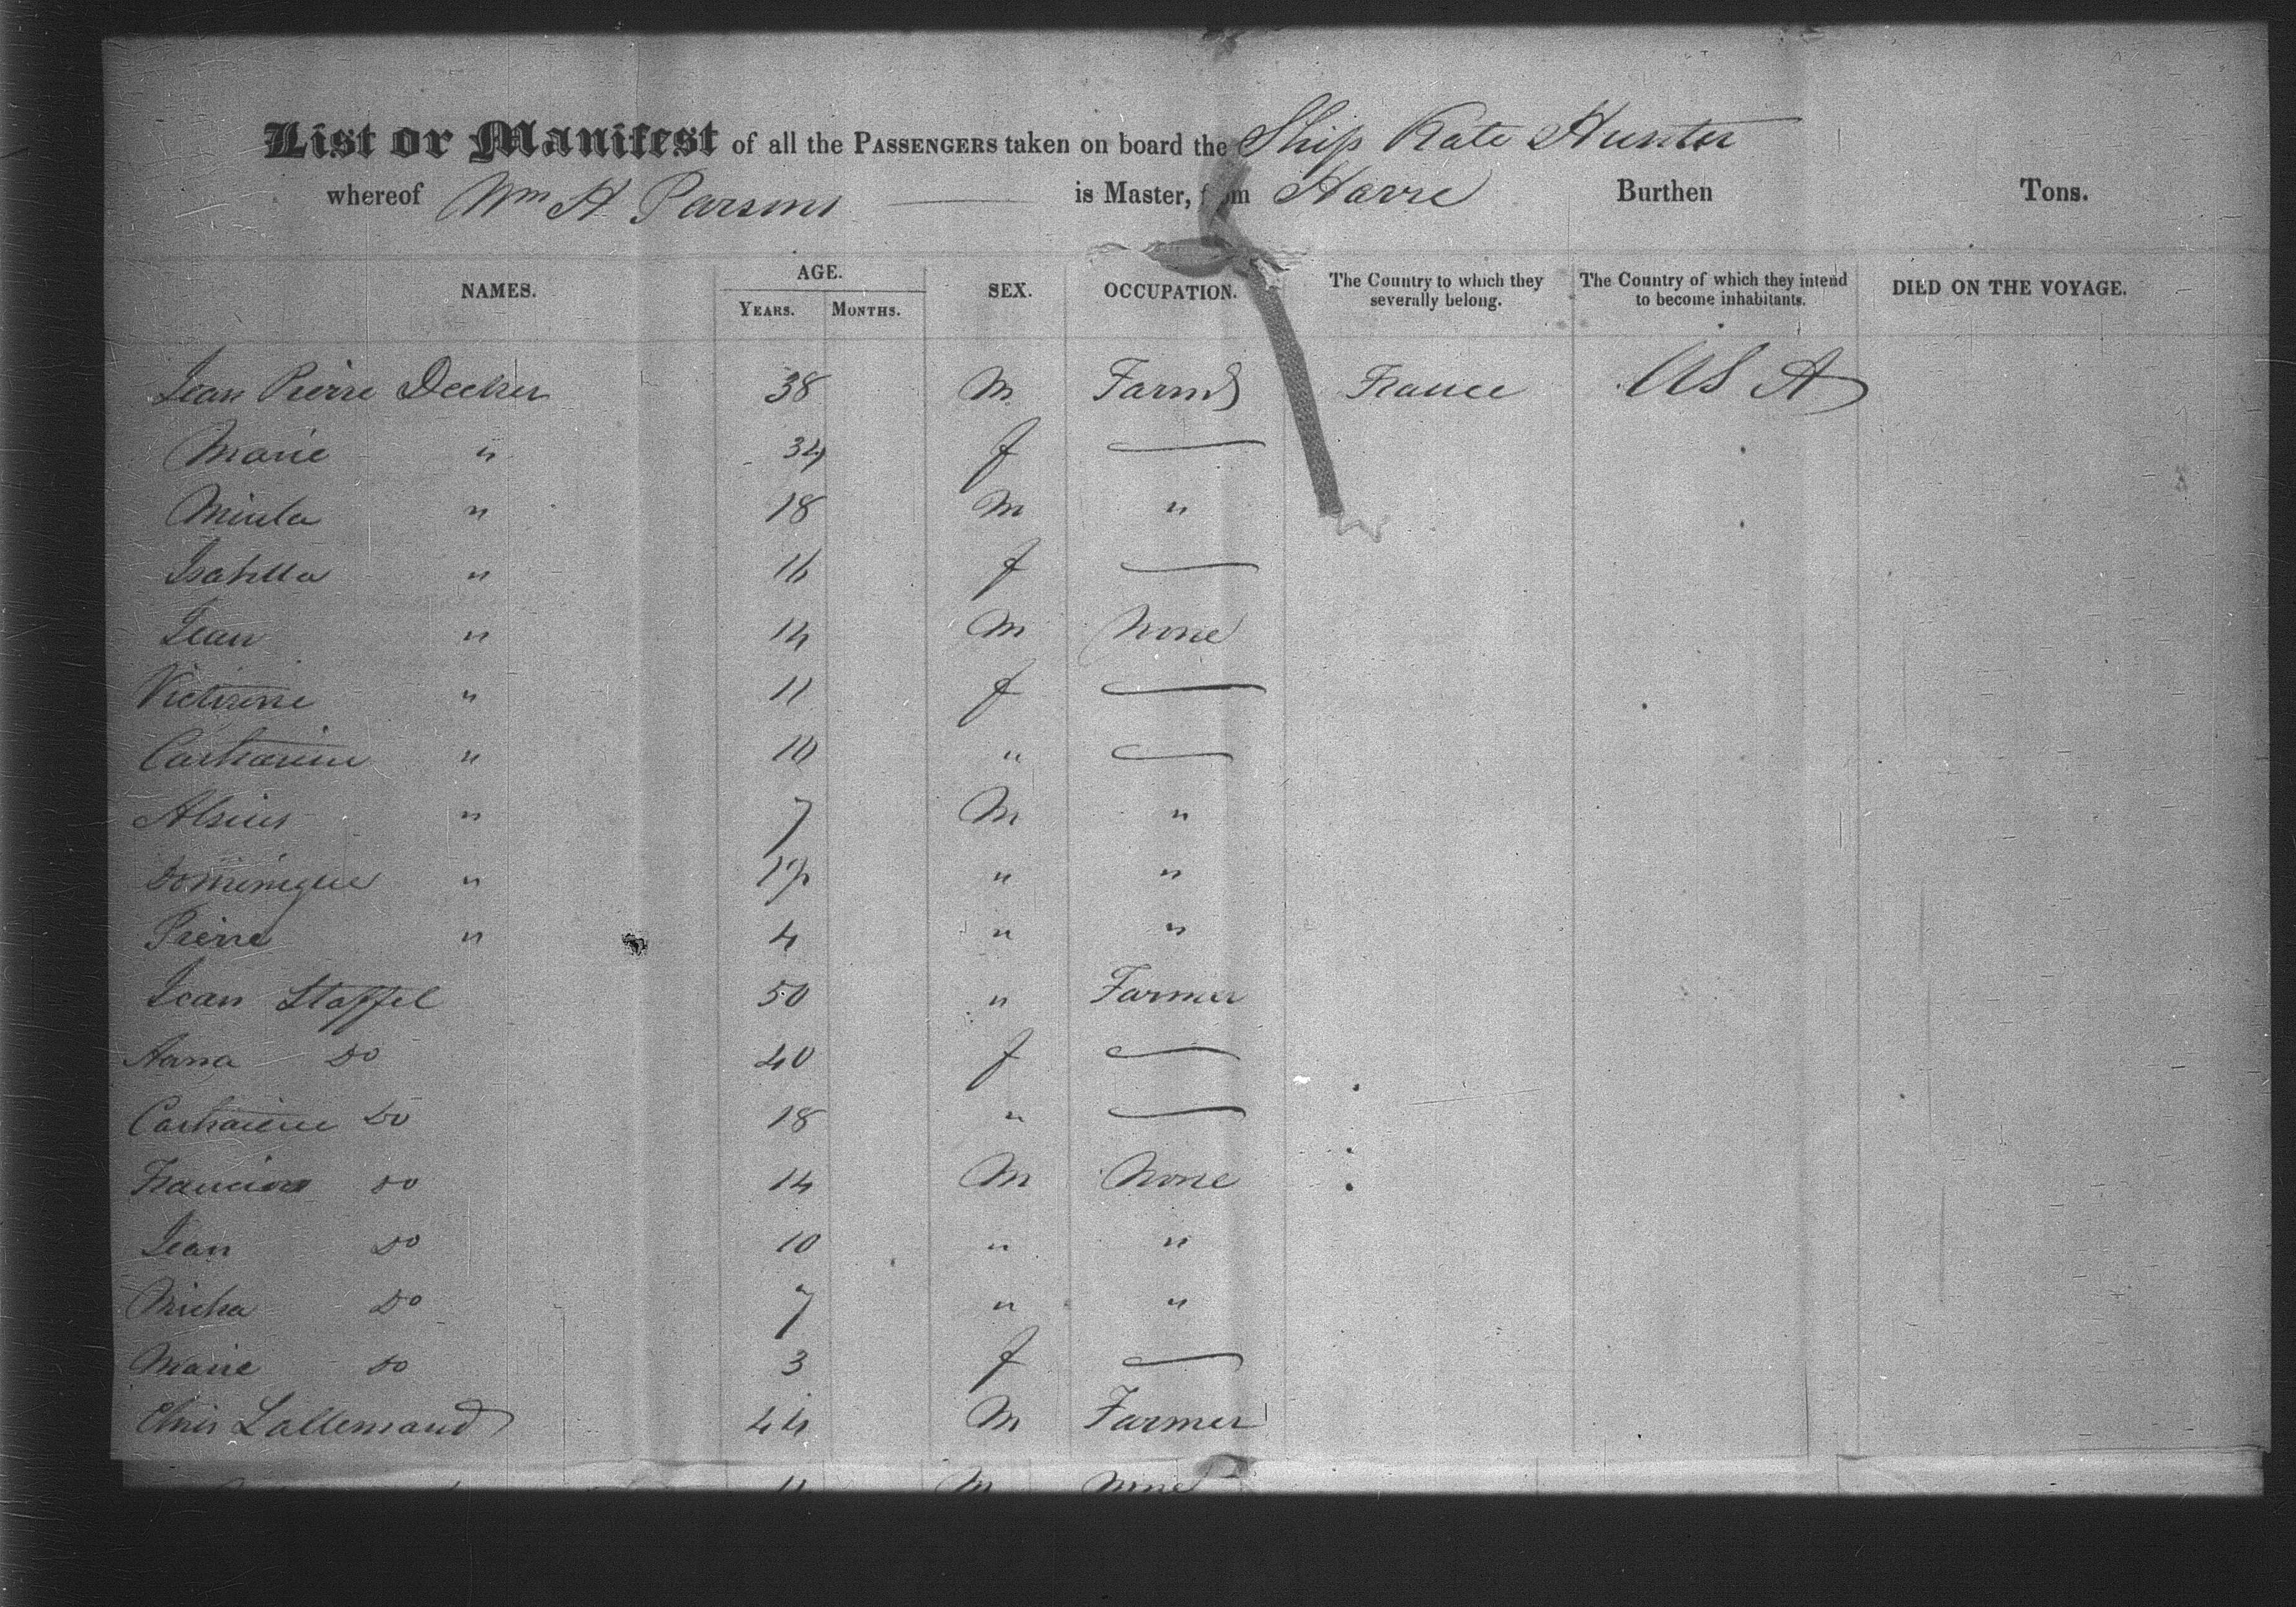 List or Manifest of all the PASSENGERS taken on board the Ship Kate Hunter
whereof Wm H Parsons is Master, from Havre Burthen Tons.
NAMES. AGE. YEARS. MONTHS. SEX. OCCUPATION. The Country to which they severally belong. The Country of which they intend to become inhabitants. DIED ON THE VOYAGE.
Jean Pierre Decker 38 M Farmr France U S A
Marie " 34 f —
" 18 M "
Isabella " 16 f —
Jean " 14 M None
" 11 f —
Catharine " 10 " —
" 7 M "
Dominique " " "
Pierre " 4 " "
Jean Staffel 50 " Farmer
Anna Do 40 f —
Catharine Do 18 " —
Do 14 M None
Jean Do 10 " "
Micha Do 7 " "
Marie Do 3 f —
Chris Lallemand 44 M Farmer
11 M None